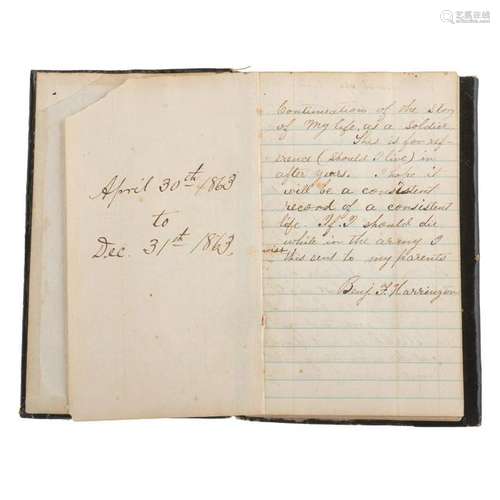 April 30th 1863
to
Dec. 31st 1863.
Continuation of the Story
of My life, as a Soldier
This is for ref-
erence (should I live) in
after years. I hope it
will be a consistent
record of a consistent
life. If I should die
while in the army I
wish this sent to my parents
Benj F. Harrington